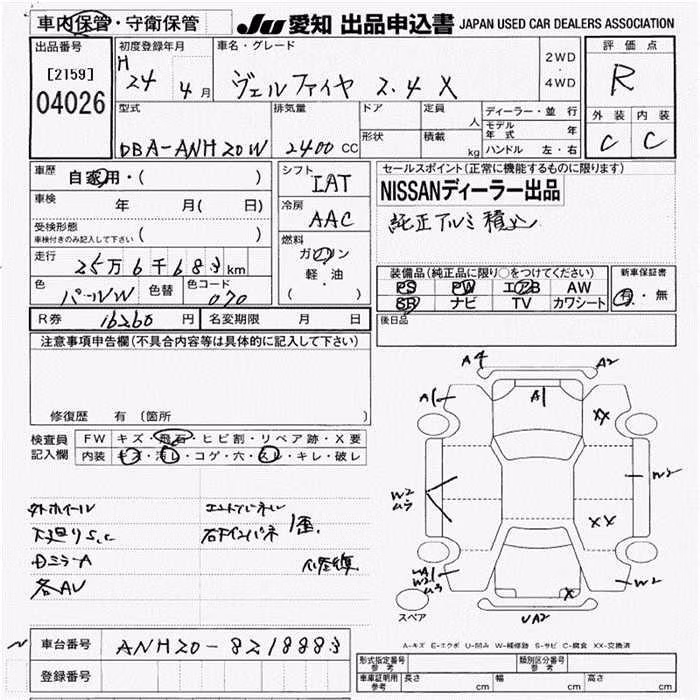 車内保管・守衛保管 JU 愛知 出品申込書 JAPAN USED CAR DEALERS ASSOCIATION
出品番号 初度登録年月 車名・グレード 2WD・4WD 評価点
[2159] H 24 4月 ヴェルファイヤ 2.4 X R
04026
型式 排気量 ドア 定員 人 ディーラー・並行 外装 内装
モデル年式 年
DBA-ANH20W 2400 CC 形状 積載 kg ハンドル 左・右 C C
車歴 自家用・( ) シフト IAT セールスポイント(正常に機能するものに限ります)
車検 年 月( 日) 冷房 AAC NISSANディーラー出品
受検形態 ( ) 純正アルミ積込
車検付きのみ記入して下さい
走行 25万6千683km 燃料 ガソリン・軽油 ( )
装備品(純正品に限り○をつけてください) 新車保証書
色 パールW 色替 色コード 070 PS PW エアB AW 有・無
SR ナビ TV カワシート
R券 16260円 名変期限 月 日 後日品
注意事項申告欄(不具合内容等は具体的に記入して下さい)
修復歴 有 〔箇所 〕
検査員記入欄 FW キズ・飛石・ヒビ割・リペア跡・X要
内装 キズ・汚レ・コゲ・穴・スレ・キレ・破レ
外ホイール
下廻りS,C
各AU
A4 A2
A1 A1 XX
W2 ムラ W2
XX
W2
X
スペア UA2
A-キズ E-エクボ U-凹み W-補修跡 S-サビ C-腐食 XX-交換済
車台番号 ANH20-8218883
登録番号
型式指定番号 参考 類別区分番号 参考
車庫証明用 参考 長さ cm 幅 cm 高さ cm